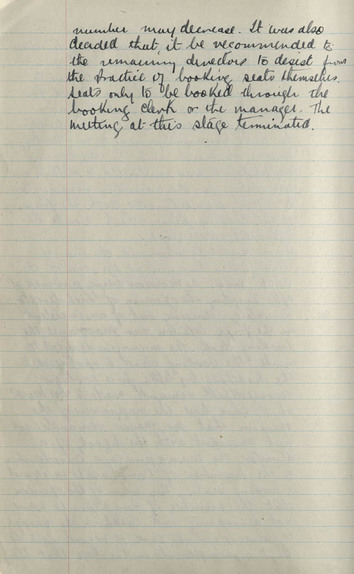 number may decrease. It was also
decided that it be recommended to
the remaining directors to desist from
the practice of booking seats themselves.
Seats only to be booked through the
booking clerk or the manager. The
meeting at this stage terminated.